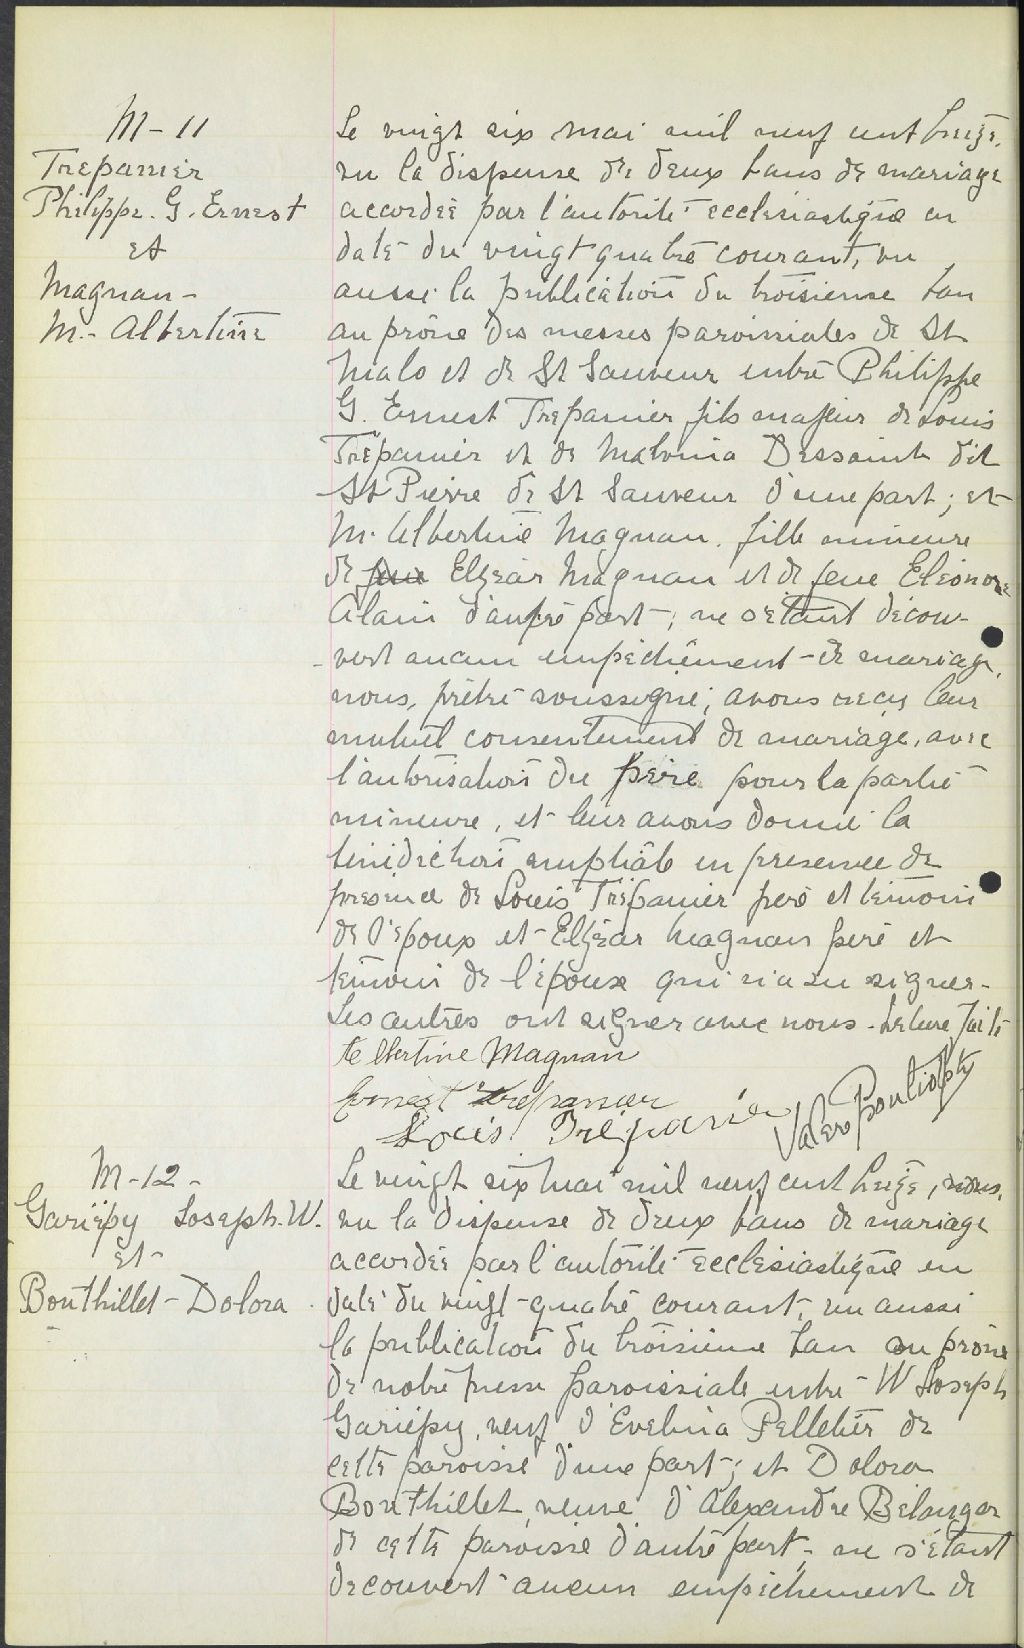 M-11
Trepanier
Philippe. G. Ernest
et
Magnan-
M.- Albertine
Le vingt six mai mil neuf cent treize,
vu la dispense de deux bans de mariage
accordée par l'autorité ecclésiastique en
date du vingt quatre courant, vu
aussi la publication du troisieme ban
au prône des messes paroissiales de St
Malo et de St Sauveur entre Philippe
G. Ernest Trepanier fils majeur de Louis
Trépanier et de Malvina Dessaint dit
St Pierre de St Sauveur d'une part; et
M. Albertine Magnan. fille mineure
de feue Elzéar Magnan et de feue Eléonore
Alain d'autre part; ne s'étant décou-
-vert aucun empêchement de mariage,
nous, prêtre soussigné; avons reçu leur
mutuel consentement de mariage, avec
l'autorisation du père pour la partie
mineure, et leur avons donné la
bénédiction nuptiale en presence de
presence de Louis Trépanier père et témoin
de l'époux et Elzéar Magnan père et
témoin de l'épouse qui n'a su signer-
Les autres ont signer avec nous. Lecture faite
Albertine Magnan
Ernest Trepanier
Louis Trépanier
Valero Pouliot Ptre
M-12-
Gariépy Joseph. W.
et-
Bonthillet - Dolora
Le vingt six mai mil neuf cent treize, nous,
vu la dispense de deux bans de mariage
accordée par l'autorité ecclésiastique en
date du vingt-quatre courant, vu aussi
la publication du troisieme ban au prône
de notre messe paroissiale entre W Joseph
Gariépy, veuf d'Evelina Pelletier de
cette paroisse d'une part; et Dolora
Bonthillet, veuve d'Alexandre Bélanger
de cette paroisse d'autre part, ne s'étant
découvert aucun empêchement de